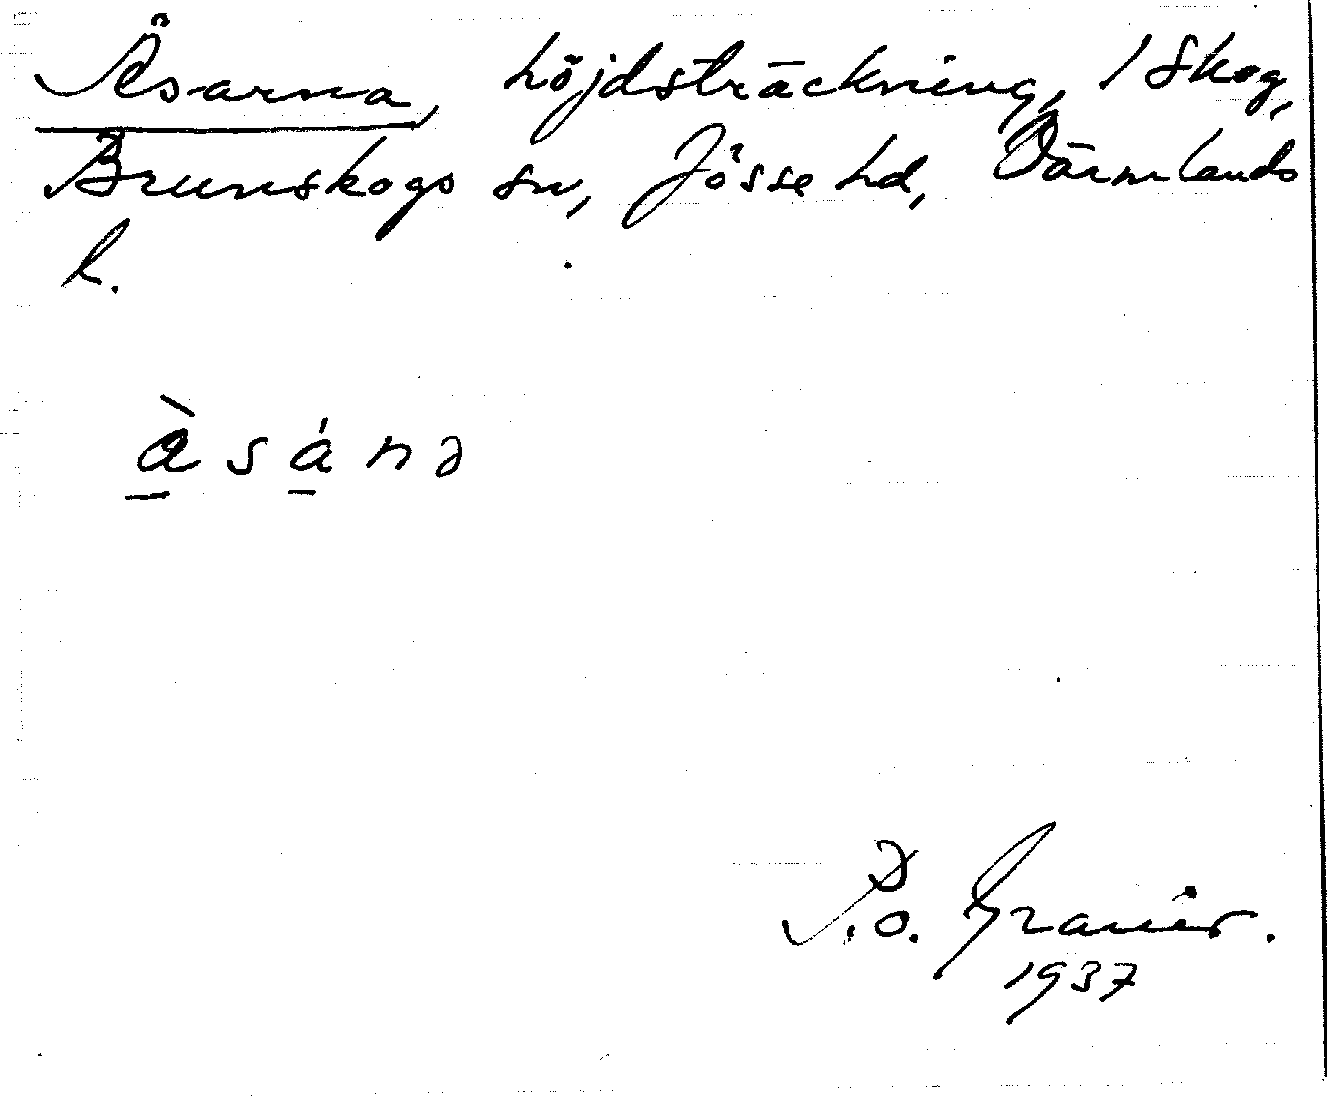 Åsarna, höjdsträckning, i skog,
Brunskogs sn, Jösse hd, Värmlands
l.
à s á n ə
P. O. Granér.
1937